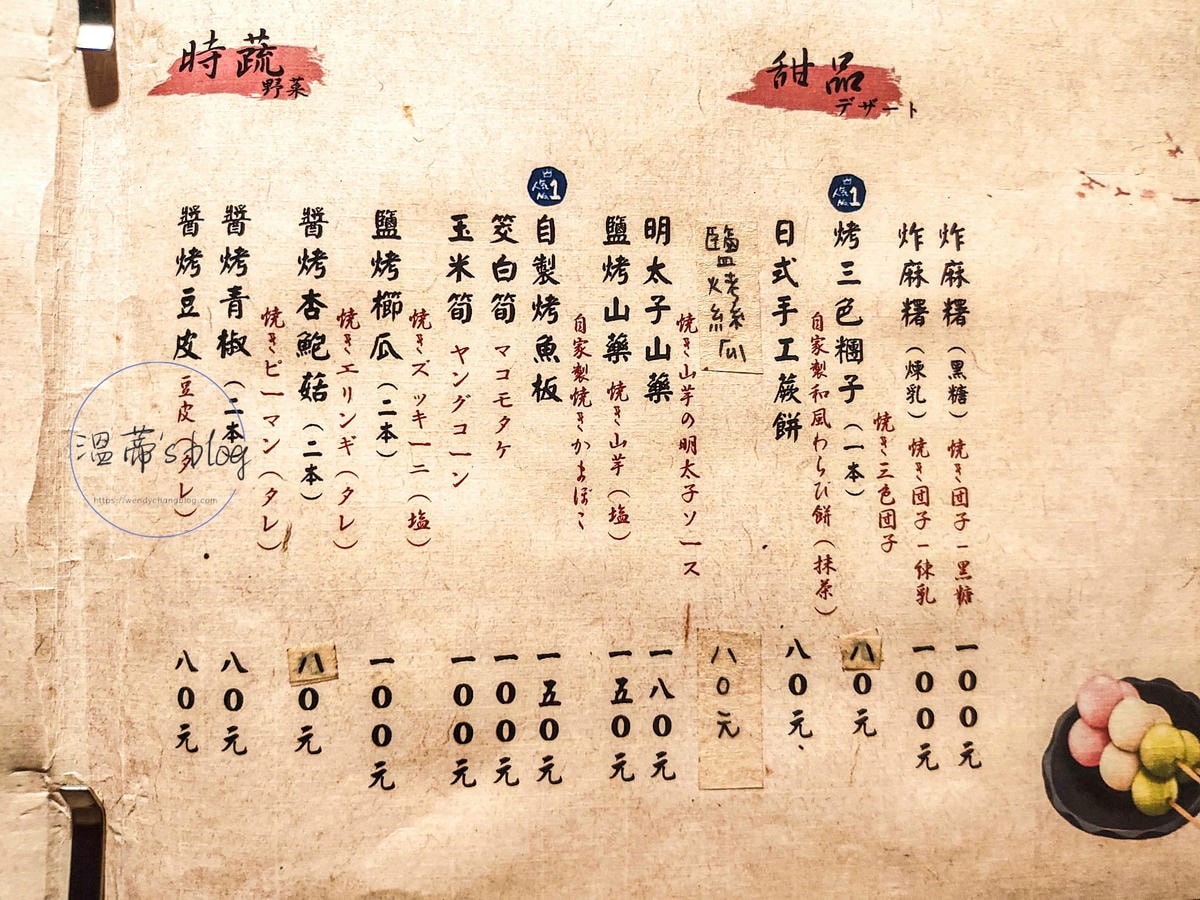 甜品
デザート
炸麻糬（黑糖）焼き団子ー黒糖
一00元
炸麻糬（煉乳）焼き団子ー練乳
一00元
人気No.1
烤三色糰子（一本）
焼き三色団子
八0元
日式手工蕨餅
自家製和風わらび餅（抹茶）
八0元
時蔬
野菜
鹽烤絲瓜
八0元
明太子山藥
焼き山芋の明太子ソース
一八0元
鹽烤山藥 焼き山芋（塩）
一五0元
人気No.1
自製烤魚板
自家製焼きかまぼこ
一五0元
筊白筍 マコモタケ
一00元
玉米筍 ヤングコーン
一00元
鹽烤櫛瓜（二本）
焼きズッキーニ（塩）
一00元
醬烤杏鮑菇（二本）
焼きエリンギ（タレ）
八0元
醬烤青椒（二本）
焼きピーマン（タレ）
八0元
醬烤豆皮 豆皮（タレ）
八0元
溫蒂's blog
https://wendychangblog.com